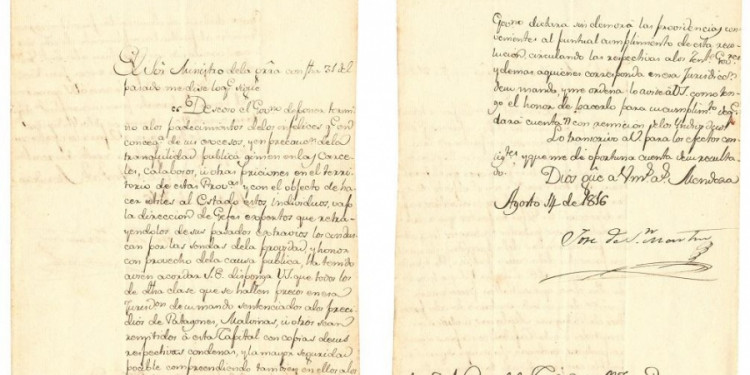 El Sór Ministro dela grra con fha 31 del
pasado me dise loqe sigue
Deseoso el Gno de poner termi-
no alos padecimientos delos infelices qe en
conseqa de sus excesos, y en precaucn dela
tranquilidad publica gimen en las Carce-
les, Calabozos, ú otras priciones en el terri-
torio de estas Provas y con el objeto de ha-
cer utiles al Estado estos individuos, vajo
la direccion de Gefes expertos que retra-
yendolos de sus pasados extravios los conduz-
can por las sendas dela providad y honor
con provecho dela causa publica, Ha tenido
avien acordar S.E. disponga V.S. que todos los
de dha clase que se hallen presos en esa
Jurisdon de su mando sentenciados alos presi-
dios de Patagones, Malvinas, ú otros sean
remitidos á esta Capital con copias desus
respectivas condenas, y la mayor seguridad
posible comprendiendo tambien en ellos alos
dictara sin demora las providencias conve-
nientes al puntual cumplimiento de esta reso-
lucion, circulando las respectivas alos Tents Govres
y demas aquienes corresponda en esa Jurisdicon
desu mando, y me ordena lo avise aV.S. como ten-
go el honor de hacerlo para su cumplimto de qe
dará cuenta con remision delos Yndividuos
Lo transcrivo aV. para los efectos consi-
gtes, y que me dé oportuna cuenta desu resulta-
do.
Dios gûe a Vm.s a.s Mendoza
Agosto 14 de 1816
Jose de Sn Martin